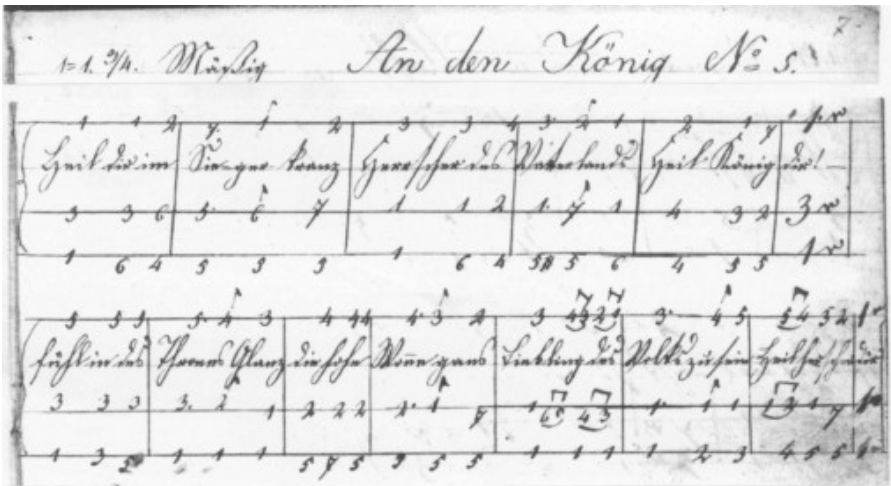 7
1=1. 3/4. Mäßig An den König No 5.
1 1 2 7. 1 2 3 3 4 3. 2 1 2 1 7 1. r
Heil dir im Sie-ger kranz Herrscher des Vaterlands Heil König dir!
3 3 6 5. 6 7 1 1 2 1. 7 1 4 3 2 3 r
1 6 4 5 5 5 1 6 4 5 6 4 5 5 1 r
5 5 5 5. 4 3 4 4 4 4. 3 2 3 43 21 3. 4 5 54 3 2 1
fühl in des Thrones Glanz die hohe Wonne ganz Liebling des Volks zu sein Heil dir
3 3 3 3. 2 1 2 2 2 2. 1 7 1 43 1. 1 1 1 7
1 3 5 1 1 1 5 5 5 5 1 1 1 1 2. 3 4 5 5